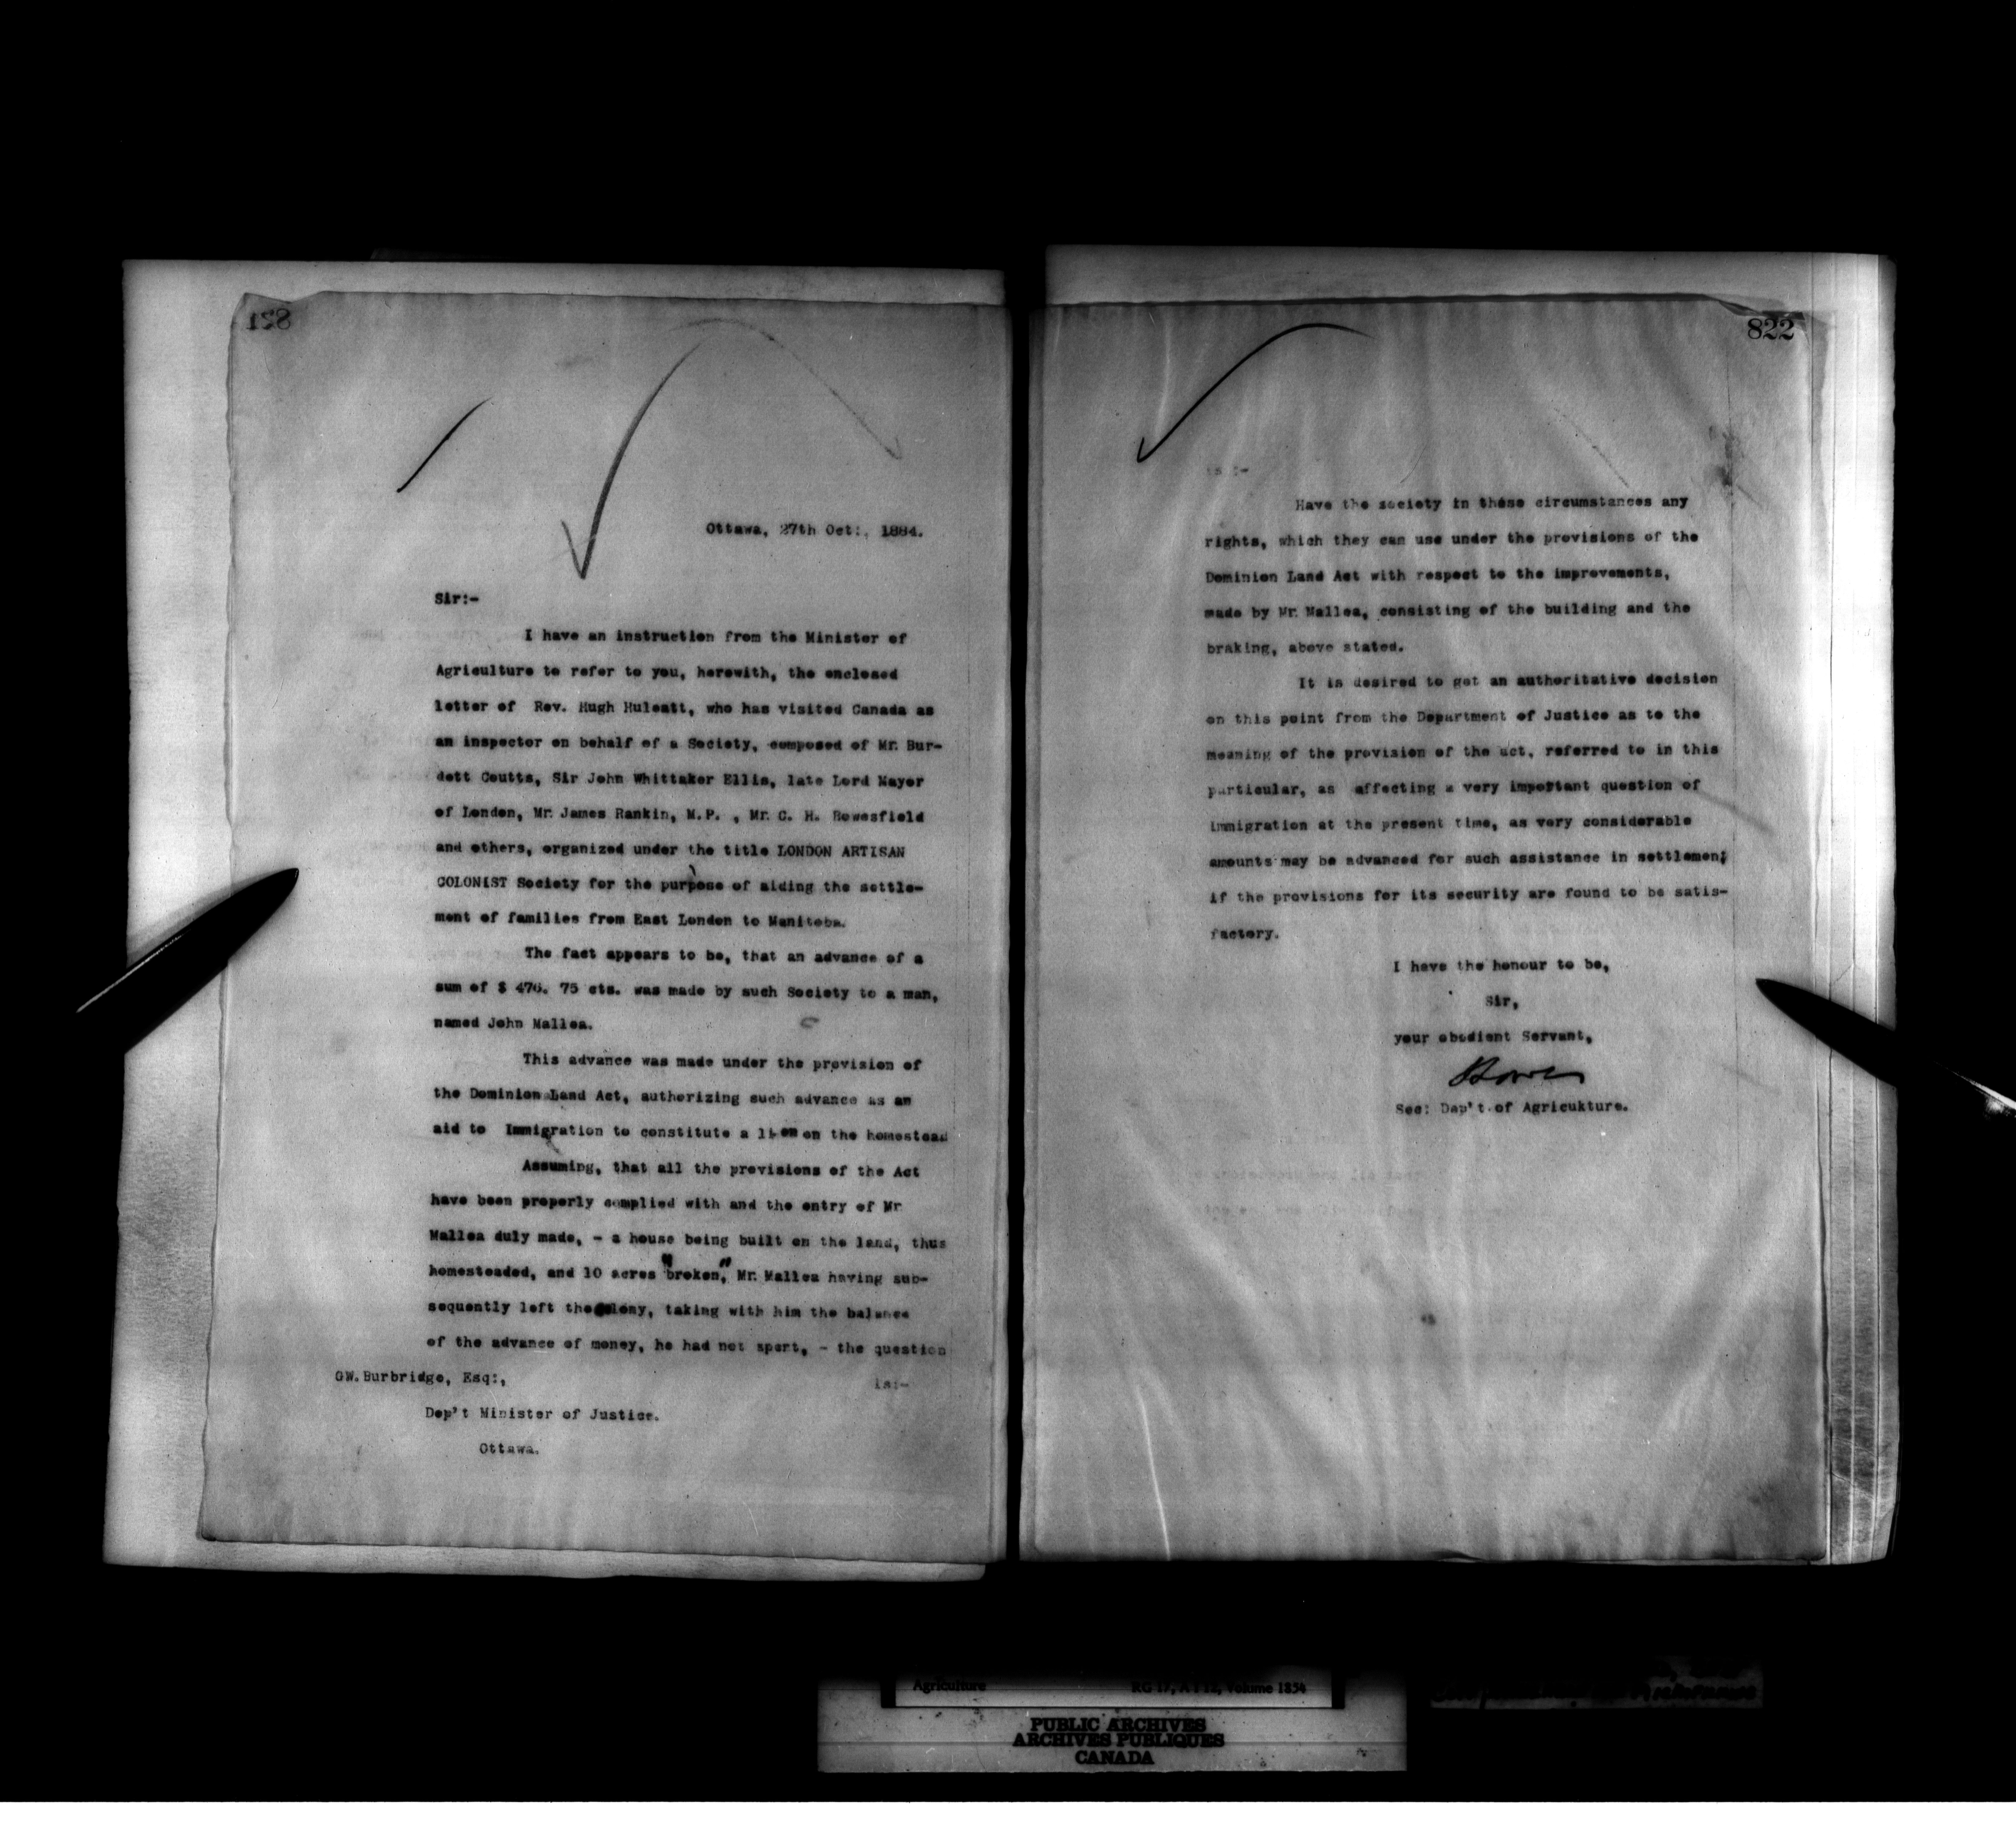 821
Ottawa, 27th Oct:, 1884.
Sir:-
I have an instruction from the Minister of
Agriculture to refer to you, herewith, the enclosed
letter of Rev. Hugh Huleatt, who has visited Canada as
an inspector on behalf of a Society, composed of Mr. Bur-
dett Coutts, Sir John Whittaker Ellis, late Lord Mayor
of London, Mr. James Rankin, M.P. , Mr. C. H. Bowesfield
and others, organized under the title LONDON ARTISAN
COLONIST Society for the purpose of aiding the settle-
ment of families from East London to Manitoba.
The fact appears to be, that an advance of a
sum of $ 476. 75 cts. was made by such Society to a man,
named John Mallea.
This advance was made under the provision of
the Dominion Land Act, authorizing such advance as an
aid to Immigration to constitute a lien on the homestead
Assuming, that all the provisions of the Act
have been properly complied with and the entry of Mr
Mallea duly made, - a house being built on the land, thus
homesteaded, and 10 acres "broken," Mr. Mallea having sub-
sequently left the colony, taking with him the balance
of the advance of money, he had not spert, - the question
GW. Burbridge, Esq:,
is:-
Dep't Minister of Justice.
Ottawa.
822
is :-
Have the society in these circumstances any
rights, which they can use under the provisions of the
Dominion Land Act with respect to the improvements,
made by Mr. Mallea, consisting of the building and the
braking, above stated.
It is desired to get an authoritative decision
on this point from the Department of Justice as to the
meaning of the provision of the act, referred to in this
particular, as affecting a very important question of
immigration at the present time, as very considerable
amounts may be advanced for such assistance in settlement;
if the provisions for its security are found to be satis-
factory.
I have the honour to be,
Sir,
your obedient Servant,
Sec: Dep't of Agricukture.
Agriculture RG 17, A I 12, Volume 1854
PUBLIC ARCHIVES
ARCHIVES PUBLIQUES
CANADA